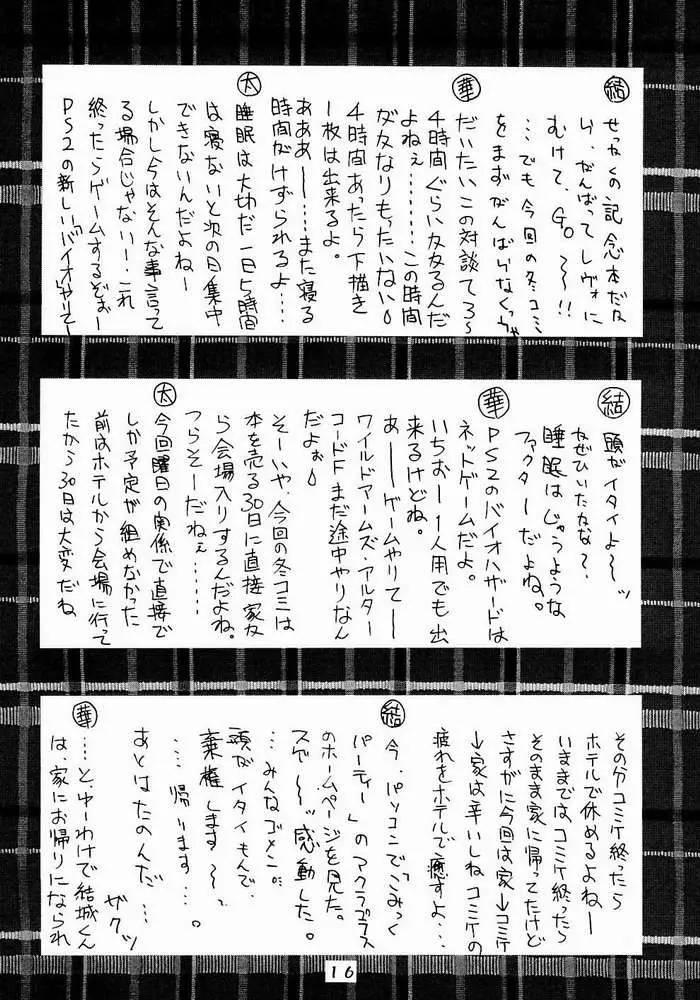 結
せっかくの記念本だな
い、がんばってレヴォに
むけて、Go〜〜!!
…でも今回の冬コミ
をまずがんばらなくっちゃ
華
だいたいこの対談てろ〜
4時間ぐらい友友るんだ
よねぇ……この時間
が友なりもったいない
4時間あったら下描き
1枚は出来るよ。
あああー……また寝る
時間がけずられるよ……
太
睡眠は大切だ一日5時間
は寝ないと次の日集中
できないんだよねー
しかし今はそんな事言って
る場合じゃないー.これ
終ったらゲームするぞぉー
PS2の新しい「バイオ」やりてー
結
頭がイタイよ〜〜ッ
なぜひいたかな?.
睡眠はじゅうような
ファクターだよね。
華
PS2のバイオハザードは
ネットゲームだよ。
いちおー1人用でも出
来るけどね。
あーーゲームやりてーー
ワイルドアームズ・アルター
コードFまだ途中やりなん
だよぉ
そーいや、今回の冬コミは
本を売る30日に直接家友
ら会場入りするんだよね。
つらそーだねぇ……
太
今回曜日の関係で直接で
しか予定が組めなかった
前はホテルから会場に行って
たから30日は大変だね
その分コミケ終ったら
ホテルで休めるよねー
いままでは、コミケ終ったら
そのまま家に帰ってたけど
さすがに今回は家→コミケ
→家は辛いしねコミケの
疲れをホテルで癒すよ…
結
今、パソコンで「こみっく
パーティー」のアクラゴラス
のホームページを見た。
スゲ〜〜ッ感動した。
…みんなゴメン。
頭がイタイもんで、
棄権します〜〜。
…帰ります…。
あとはたのんだ…
ザクッ
華
…と、ゆーわけで結城くん
は、家にお帰りになられ
16